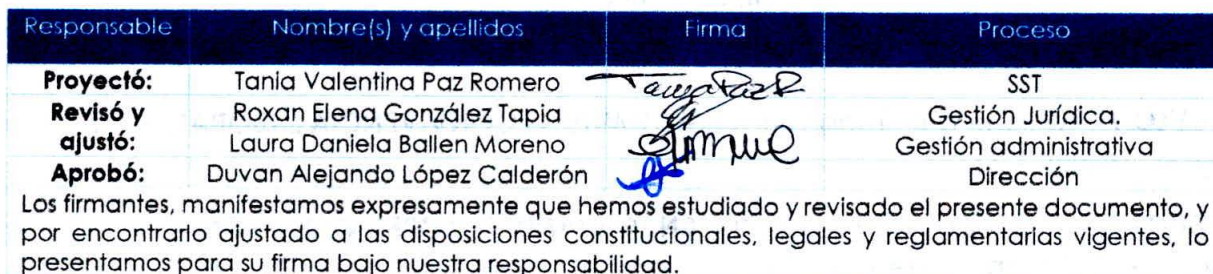 Responsable Nombre(s) y apellidos Firma Proceso
Proyectó: Tania Valentina Paz Romero Tania Paz R SST
Revisó y Roxan Elena González Tapia Gestión Jurídica.
ajustó: Laura Daniela Ballen Moreno Gestión administrativa
Aprobó: Duvan Alejando López Calderón Dirección
Los firmantes, manifestamos expresamente que hemos estudiado y revisado el presente documento, y
por encontrarlo ajustado a las disposiciones constitucionales, legales y reglamentarias vigentes, lo
presentamos para su firma bajo nuestra responsabilidad.